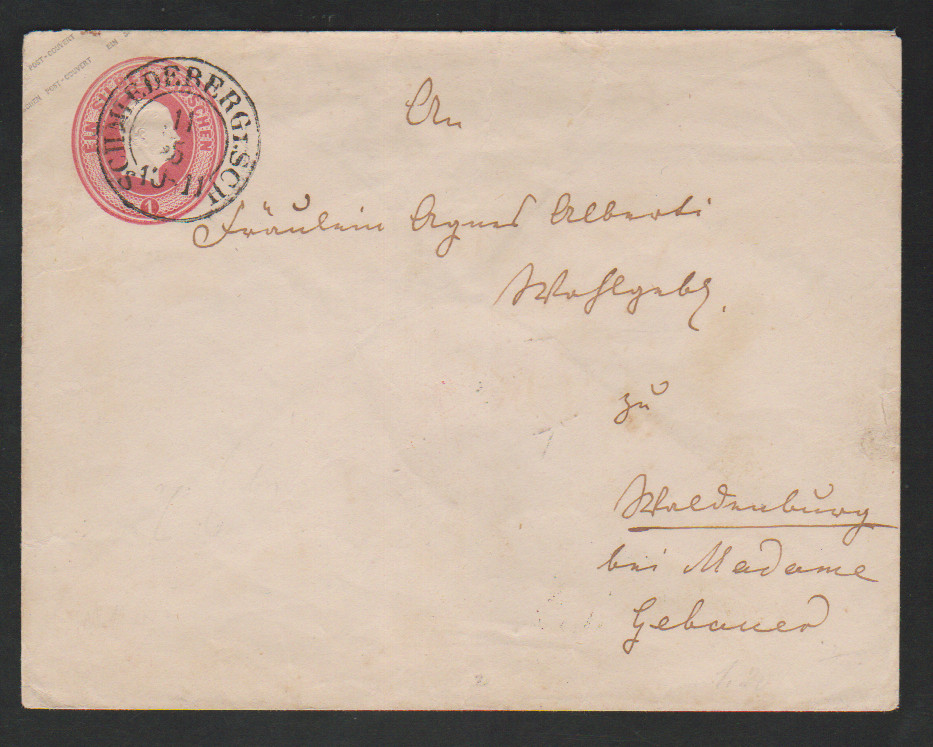 POST-COUVERT EIN
POST-COUVERT
EIN SILBERGROSCHEN
1
SCHMIEDEBERG I. SCH
11
10-11
An
Fräulein Agnes Alberti
Wohlgeb.
zu
Waldenburg
bei Madame
Gebauer